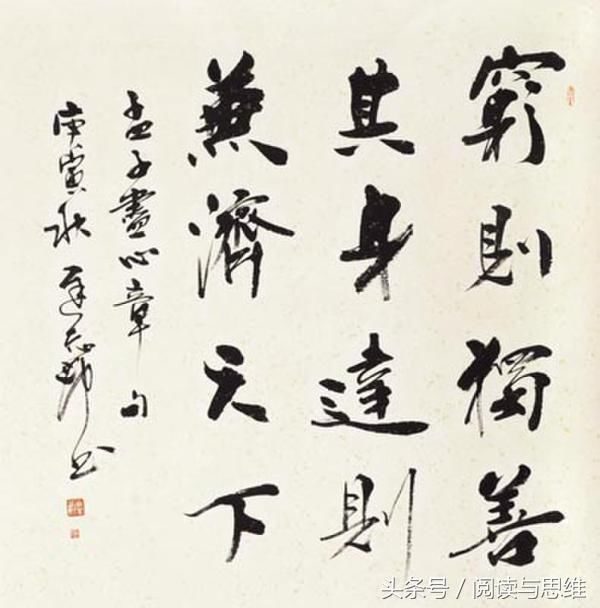 窮則獨善
其身達則
兼濟天下
孟子盡心章句
庚寅秋 书
头条号 / 阅读与思维